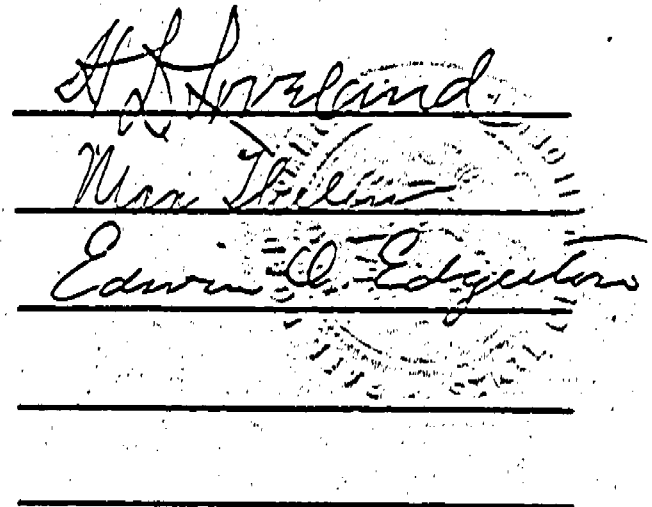 H L Loveland
Max Thelen
Edwin O. Edgerton